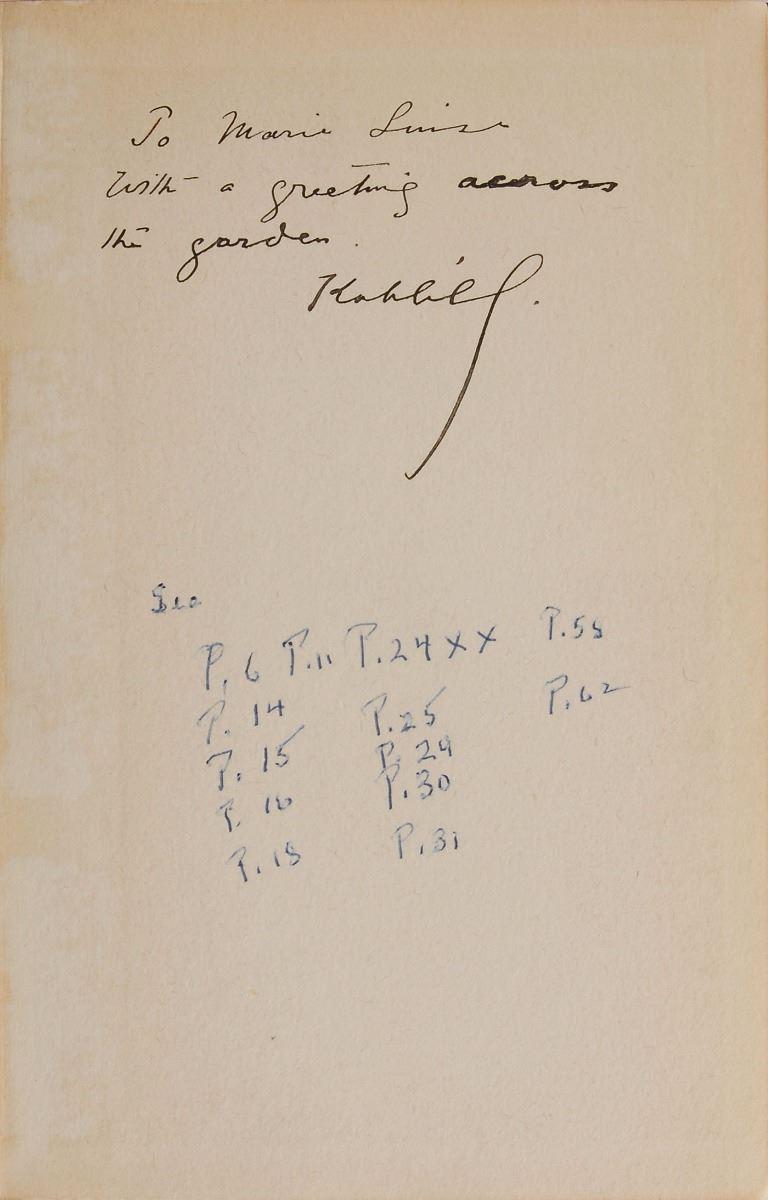 To Marie Luise
With a greeting across
the garden.
Kahlil.
See
P. 6 P. 11 P. 24 x x P. 58
P. 14 P. 25 P. 62
P. 15 P. 29
P. 16 P. 30
P. 18 P. 31